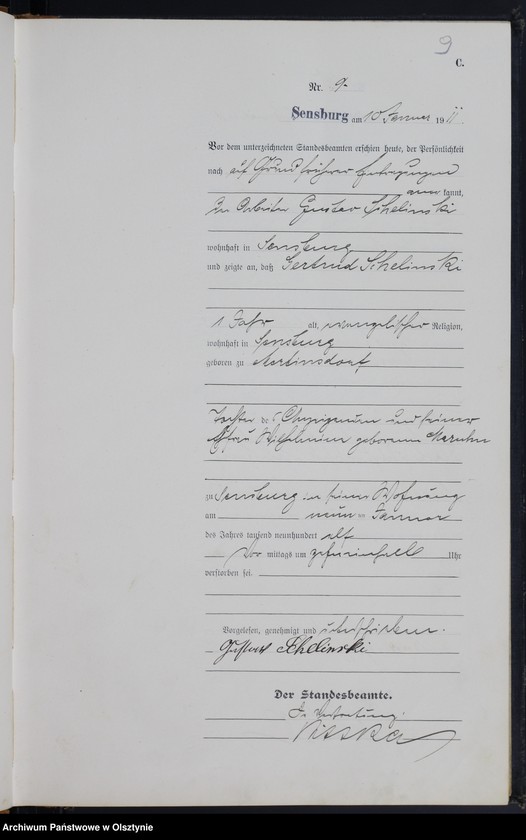 9
C.
Nr. 9
Sensburg am 10 Januar 19 11
Vor dem unterzeichneten Standesbeamten erschien heute, der Persönlichkeit
nach auf Grund früherer Eintragungen
aner kannt,
der Arbeiter Gustav Schelinski
wohnhaft in Sensburg
und zeigte an, daß Gertrud Schelinski
1 Jahr alt, evangelischer Religion,
wohnhaft in Sensburg
geboren zu Martinsdorf
Tochter des Anzeigenden und seiner
Ehefrau Wilhelmine geborenen
zu Sensburg in seiner Wohnung
am neun ten Januar
des Jahres tausend neunhundert elf
Vor mittags um Uhr
verstorben sei.
Vorgelesen, genehmigt und unterschrieben.
Gustav Schelinski
Der Standesbeamte.
In Vertretung.
Archiwum Państwowe w Olsztynie